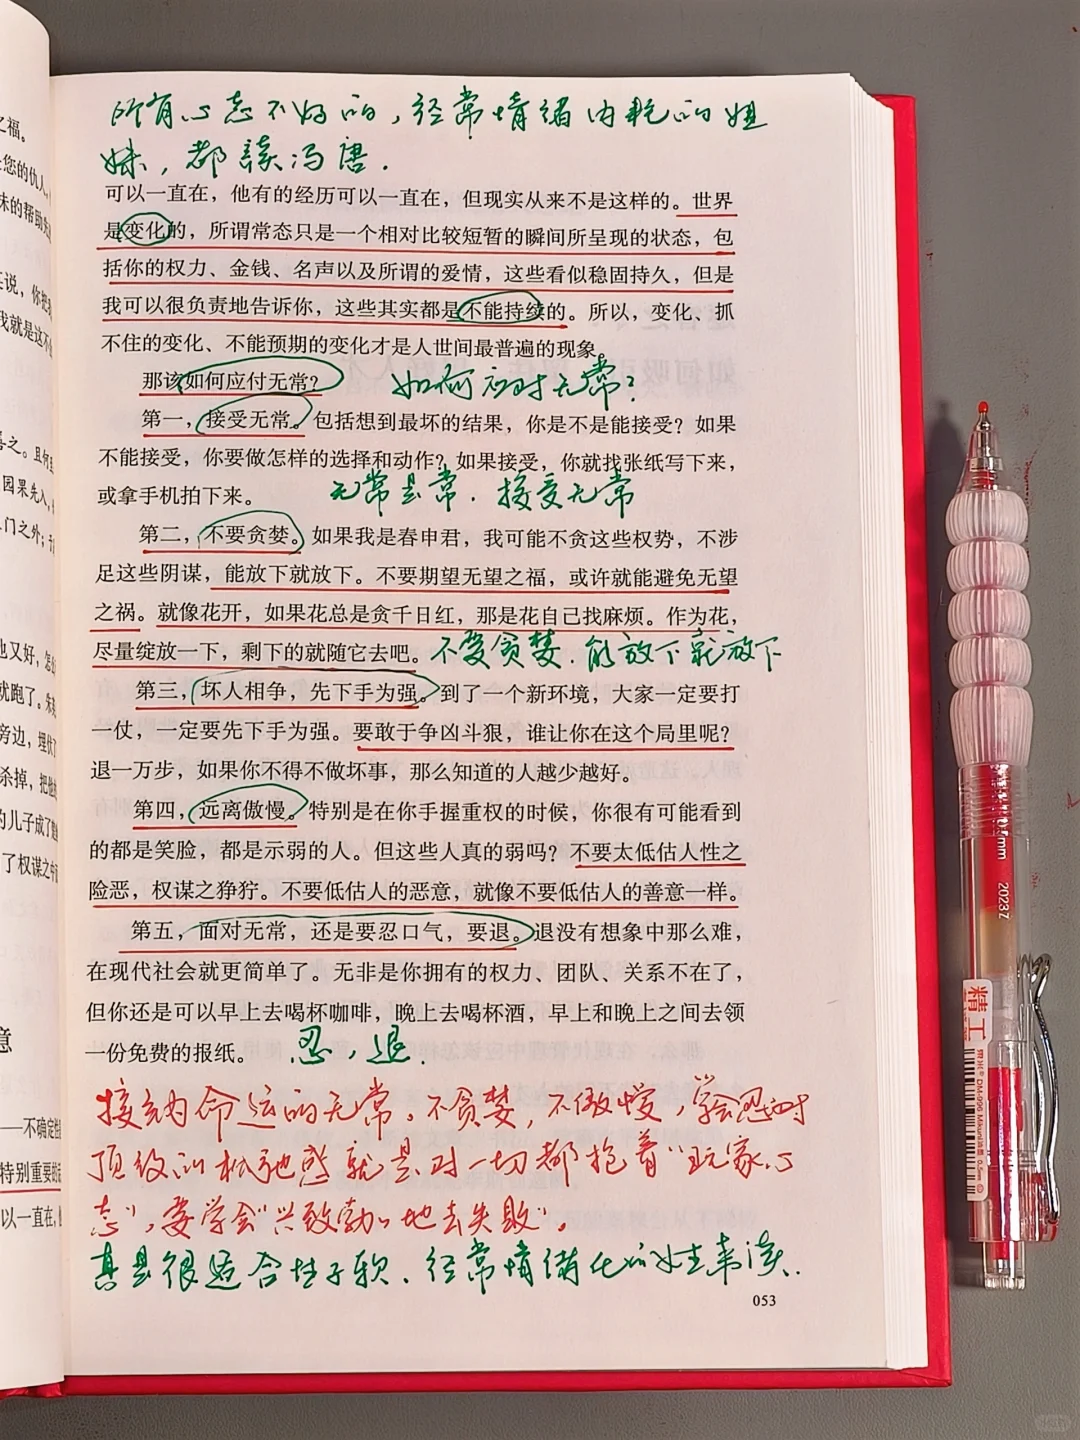 所有心态不好的，经常情绪内耗的姐
妹，都读冯唐.
可以一直在，他有的经历可以一直在，但现实从来不是这样的。世界
是变化的，所谓常态只是一个相对比较短暂的瞬间所呈现的状态，包
括你的权力、金钱、名声以及所谓的爱情，这些看似稳固持久，但是
我可以很负责地告诉你，这些其实都是不能持续的。所以，变化、抓
不住的变化、不能预期的变化才是人世间最普遍的现象。
那该如何应付无常？
如何应对无常？
第一，接受无常。包括想到最坏的结果，你是不是能接受？如果
不能接受，你要做怎样的选择和动作？如果接受，你就找张纸写下来，
或拿手机拍下来。
无常是常.接受无常
第二，不要贪婪。如果我是春申君，我可能不贪这些权势，不涉
足这些阴谋，能放下就放下。不要期望无望之福，或许就能避免无望
之祸。就像花开，如果花总是贪千日红，那是花自己找麻烦。作为花，
尽量绽放一下，剩下的就随它去吧。
不要贪婪.能放下就放下
第三，坏人相争，先下手为强。到了一个新环境，大家一定要打
一仗，一定要先下手为强。要敢于争凶斗狠，谁让你在这个局里呢？
退一万步，如果你不得不做坏事，那么知道的人越少越好。
第四，远离傲慢。特别是在你手握重权的时候，你很有可能看到
的都是笑脸，都是示弱的人。但这些人真的弱吗？不要太低估人性之
险恶，权谋之狰狞。不要低估人的恶意，就像不要低估人的善意一样。
第五，面对无常，还是要忍口气，要退。退没有想象中那么难，
在现代社会就更简单了。无非是你拥有的权力、团队、关系不在了，
但你还是可以早上去喝杯咖啡，晚上去喝杯酒，早上和晚上之间去领
一份免费的报纸。
忍，退.
接纳命运的无常，不贪婪，不傲慢，学会忍耐
顶级的松弛感就是对一切都抱着"玩家心
态"，要学会"兴致勃勃地去失败"。
真是很适合性子软、经常情绪化的女生来读.
053
之福。
您的仇人
味的帮助
说，你把
我就是这不
喜之。且何
园果先入，
门之外；
也又好，怎
就跑了。朱
旁边，埋伏
杀掉，把他
的儿子成了
了权谋之中
意
——不确定
特别重要的
以一直在，
0.5mm
2023Z
精工